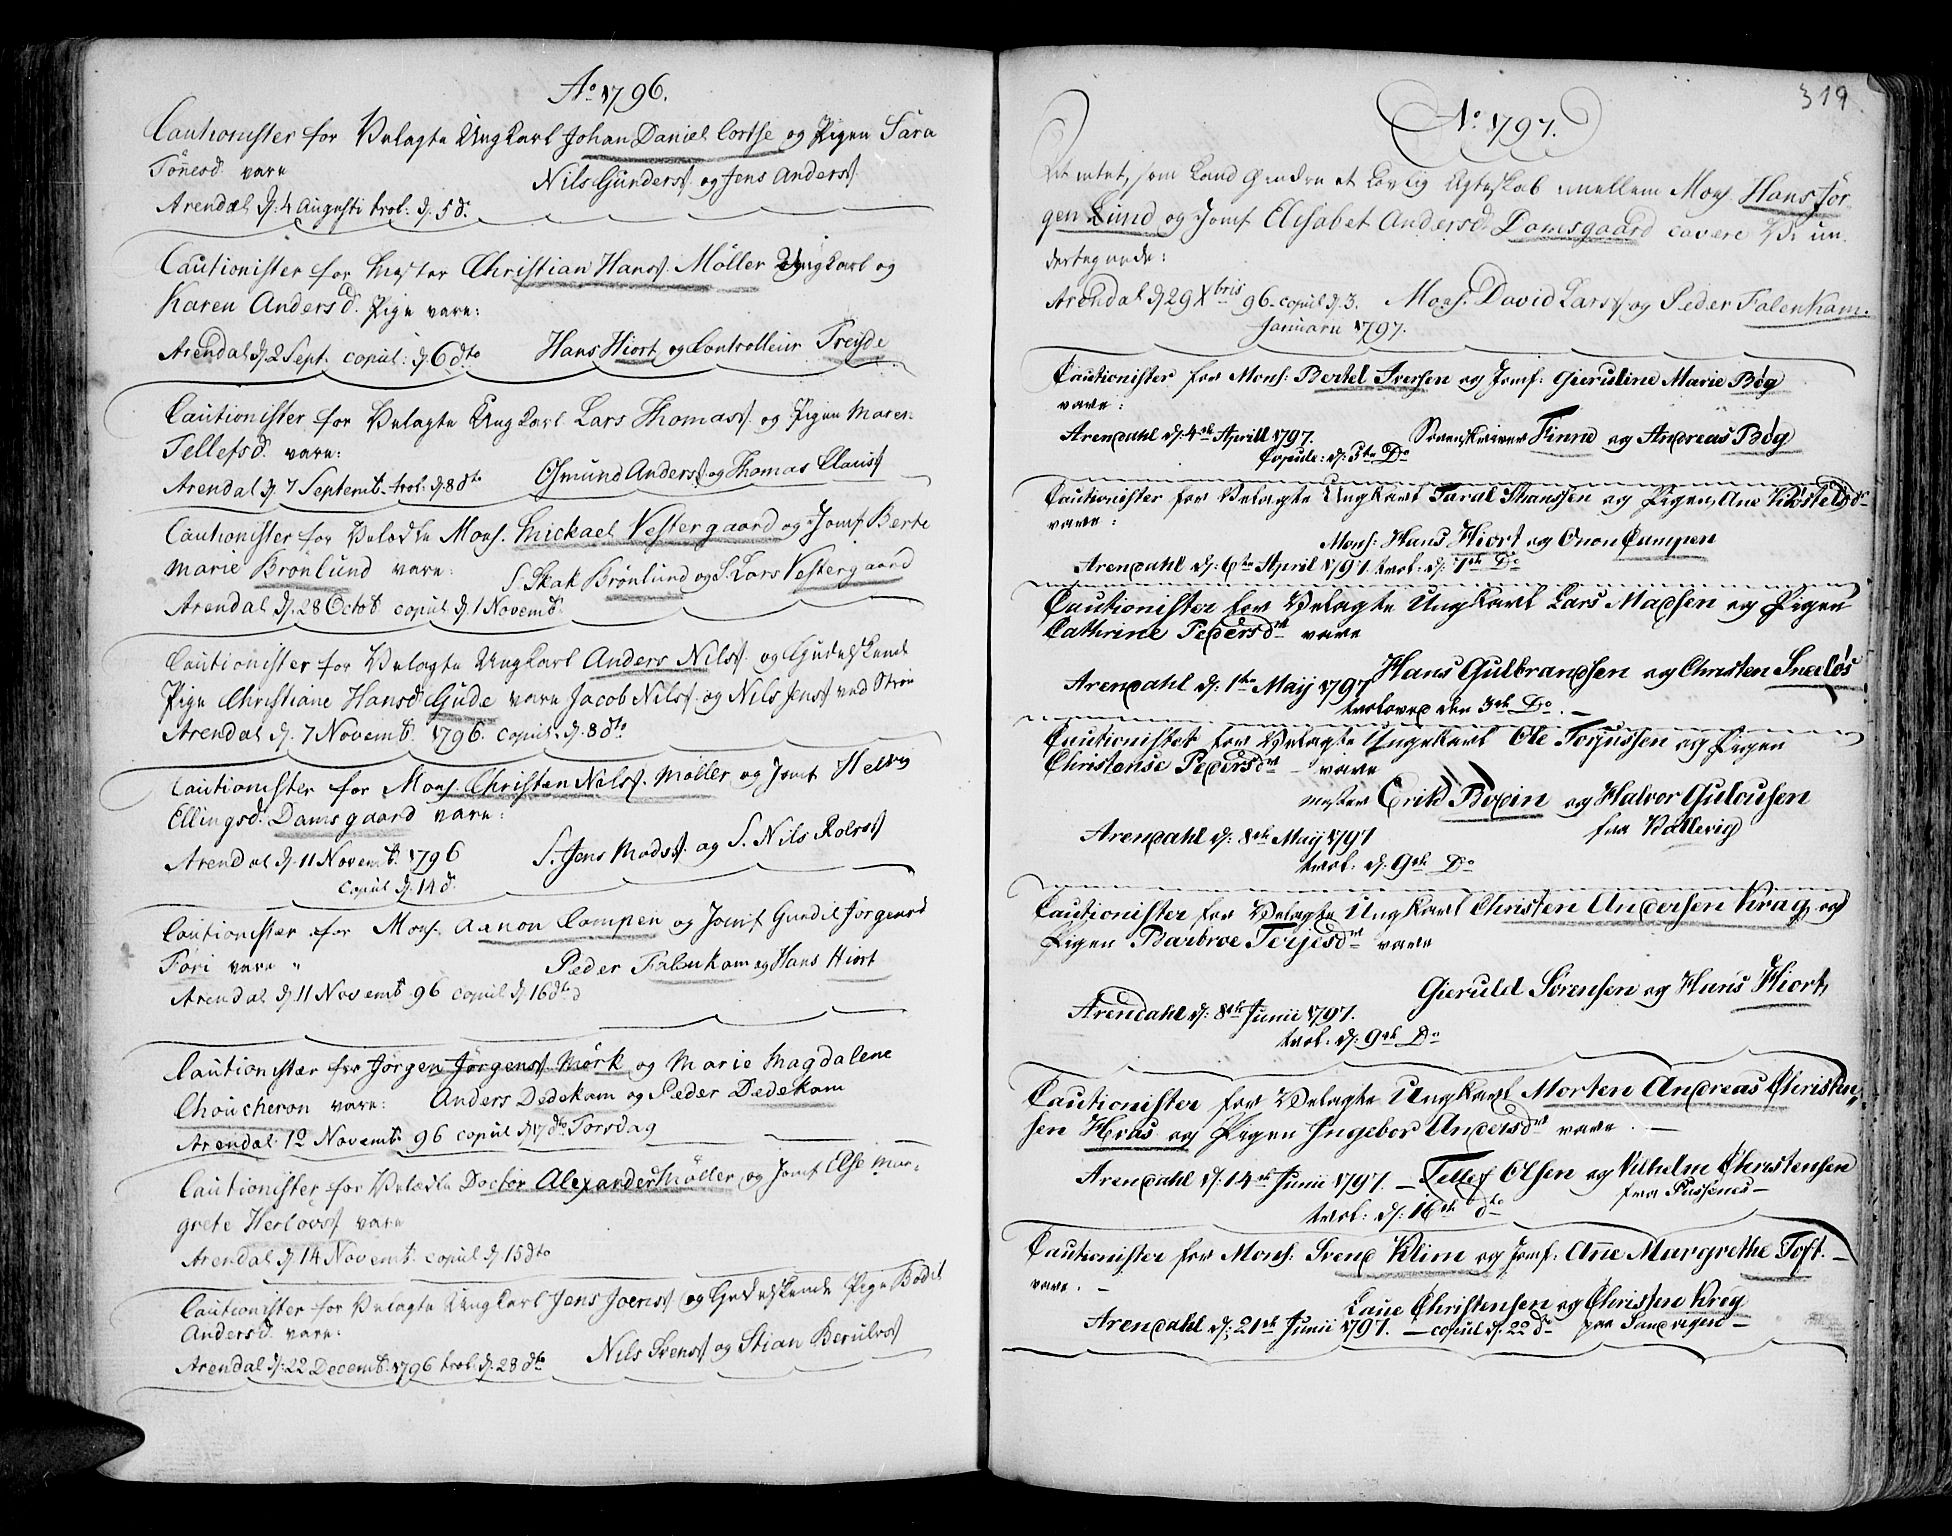 Ao 1796.
Cautionister for Velagte Ungkarl Johan Daniel Cortse og Pigen Sara
Tönesd. vare
Nils Gunders. og Jens Anders.
Arendal d. 4 Augusti trol. d. 5 d.
Cautionister for Mester Christian Hans. Möller Ungkarl og
Karen Andersd. Pige vare:
Arendal d. 2 Sept. copul: d. 6 dto Hans Hiort og Controlleur Treyde
Cautionister for Velagte Ungkarl Lars Thomas. og Pigen Maren
Tellefsd. vare:
Arendal d. 7 Septemb. trol. d. 8 dto Osmund Anders. og Thomas Claus.
Cautionister for Velædle Mons. Mickael Vestergaard og Jomf Berte
Marie Brönlund vare: S. Skak Brönlund og S. Lars Vestergaard
Arendal d. 28 Octob. copul d. 1 Novemb.
Cautionister for Velagte Ungkarl Anders Nils. og Gudelskende
Pige Christiane Hansd. Gude vare Jacob Nils. og Nils Jens. ved Strön
Arendal d. 7 Novemb. 1796. copul. d. 8 dto
Cautionister for Mons. Christen Nils. Möller og Jomf Helvy
Ellingsd. Damsgaard vare:
Arendal d. 11 Novemb. 1796 S. Jens Mads. og S. Nils Rolvs.
copul d. 14 d.
Cautionister for Mons. Aanon Campen og Jomf Gundil Jörgensd
Fori vare
Peder Falenkam og Hans Hiort
Arendal d. 11 Novemb. 96 copul d. 16 dto
Cautionister for Jörgen Jörgens. Mörk og Marie Magdalene
Choucheron vare: Anders Dedekam og Peder Dedekam
Arendal 12 Novemb. 96 copul d. 17 dto Torsdag
Cautionister for Velædle Doctor Alexander Möller og Jomf Else Mar-
grete Herlovs. vare
Arendal d. 14 Novemb. copul d. 15 dto
Cautionister for Velagte Ungkarl Jens Joens. og Gudelskende Pige Bodil
Andersd. vare:
Arendal d. 22 Decemb. 1796 trol. d. 28 dto Nils Svens. og Stian Berulvs.
319
Ao 1797.
at lovlig Ægteskab imellem Mons. Hans Jör-
gen Lund og Jomf Elisabet Andersd. Damsgaard cavere Vi un-
dertegnede:
Arendal d. 29 Xbris 96. copul d. 3. Mons. David Lars. og Peder Falenkam.
Januarii 1797.
Cautionister for Mons: Bertel Iversen og Jomf: Gieruline Marie Bøg
vare:
Arendahl d. 4de Aprill 1797. Sorenskriver Finne og Andreas Bøg
Copule: d: 5te Do
Cautionister for Velagte Ungkarl Taral Hanssen og Pigen Ane
vare:
Mons: Hans Hiort og Onon Campen
Arendahl d: 6te April 1797. trol: d: 7de Do
Cautionister for Velagte Ungkarl Lars Madsen og Pigen
Cathrine Pedersdr vare
Hans Gulbrandsen og Christen Sneeløs
Arendahl d: 1te Maij 1797
troloved den 3de Do.
Cautionister for Velagte Ungekarl Ole Torjussen og Pigen
Christense Pedersdr vare
Mester Erik Boyin og Halvor Gulousen
fra Kallevig
Arendahl d: 8de Maij 1797
trol: d: 9de Do
Cautionister for Velagte Ungkarl Christen Andersen Krag og
Pigen Barbroe Terjesdr vare
Gieruld Sørensen og Hans Hiort
Arendahl d: 8de Junii 1797.
trol: d: 9de Do
Cautionister for Velagte Ungkarl Morten Andreas Christen-
sen Hvas og Pigen Ingebor Andersdr vare.
Arendahl d: 14de Junii 1797. Tellef Olsen og Vilhelm Christensen
fra Pussenes
trol: d: 16de dto
Cautionister for Mons: Svend Klim og Jomf: Ane Margrethe Toft.
vare.
Laue Christensen og Christen Krøg
Arendahl d: 21de Junii 1797. copul d: 22 do paa Sandvigen